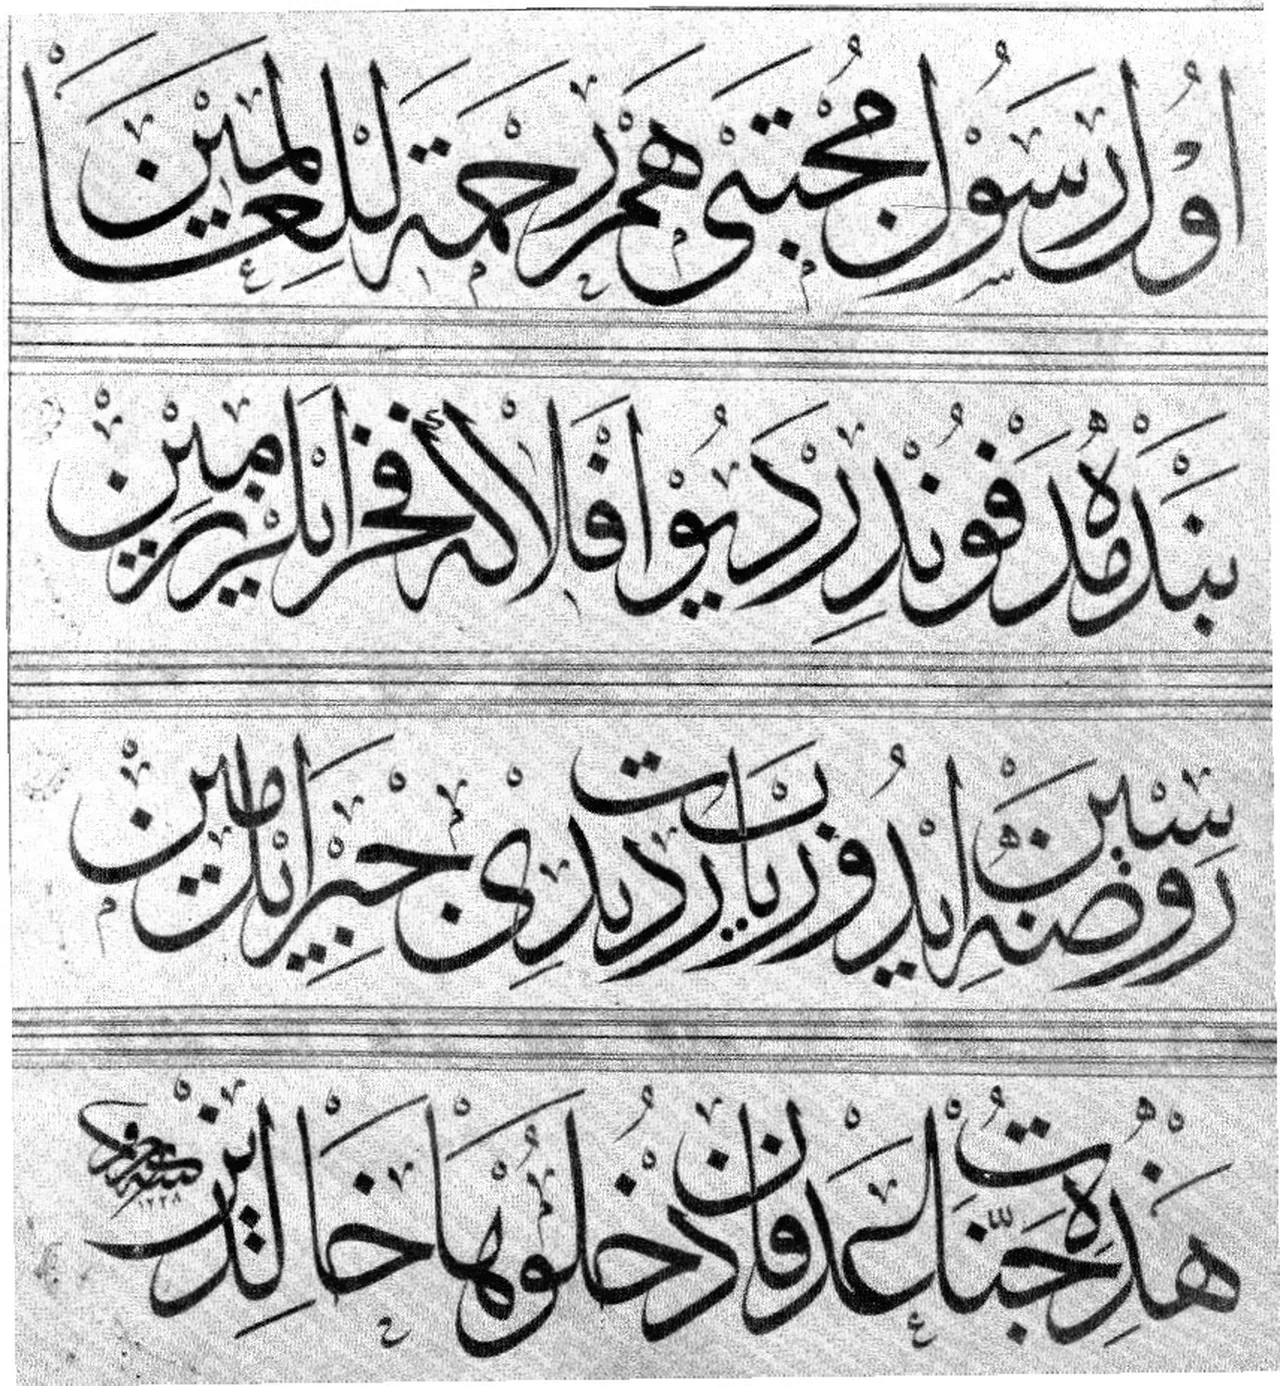 اول رسول مجتبى هم رحمة للعالمين
بنده مدفوندر ديو افلاكه فخر ايلر زمين
روضه سين ايدوب زيارت ديدى جبريل امين
هذه جنات عدن فادخلوها خالدين
١٢٢٨